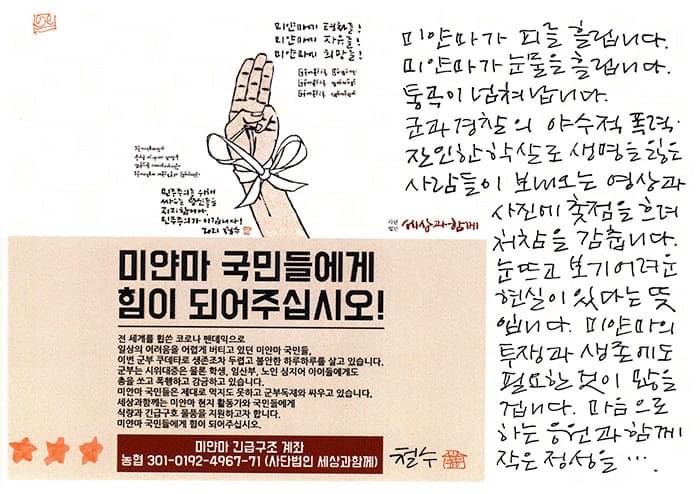 미얀마에 평화를!
미얀마에 자유를!
미얀마에 희망을!
민주주의를 위해
싸우는 당신들을
지지합니다.
민주주의가 이깁니다!
2021 철수
사단
법인 세상과함께
미얀마 국민들에게
힘이 되어주십시오!
전 세계를 휩쓴 코로나 펜데믹으로
일상의 어려움을 어렵게 버티고 있던 미얀마 국민들,
이번 군부 쿠데타로 생존조차 두렵고 불안한 하루하루를 살고 있습니다.
군부는 시위대중은 물론 학생, 임산부, 노인 심지어 아이들에게도
총을 쏘고 폭행하고 감금하고 있습니다.
미얀마 국민들은 제대로 먹지도 못하고 군부독재와 싸우고 있습니다.
세상과함께는 미얀마 현지 활동가와 국민들에게
식량과 긴급구호 물품을 지원하고자 합니다.
미얀마 국민들에게 힘이 되어주십시오.
미얀마 긴급구조 계좌
농협 301-0192-4967-71 (사단법인 세상과함께)
철수
미얀마가 피를 흘립니다.
미얀마가 눈물을 흘립니다.
통곡이 넘쳐납니다.
군과 경찰의 야수적 폭력·
잔인한 학살로 생명을 잃은
사람들이 보내오는 영상과
사진에 촛점을 흐려
처참을 감춥니다.
눈뜨고 보기어려운
현실이 있다는 뜻
입니다. 미얀마의
투쟁과 생존에도
필요한 것이 많을
겁니다. 마음으로
하는 응원과 함께
작은 정성을 ….